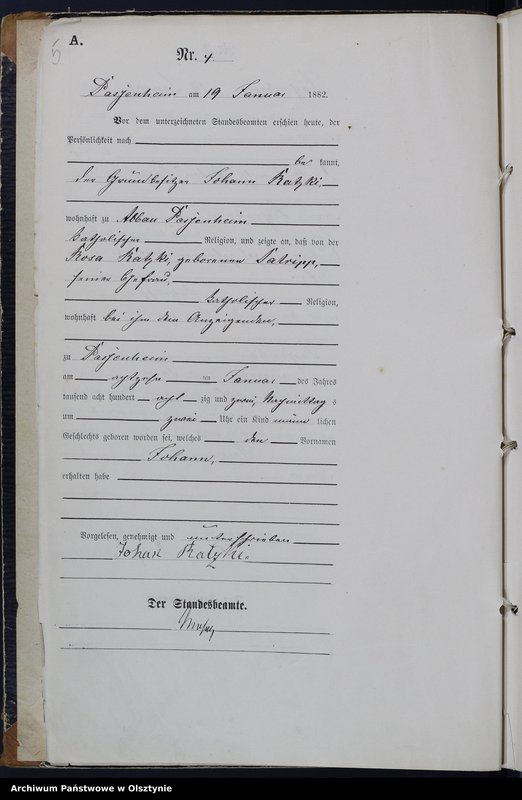 5
A.
Nr. 4.
Passenheim am 19 Januar 1882.
Vor dem unterzeichneten Standesbeamten erschien heute, der
Persönlichkeit nach
be kannt,
der Grundbesitzer Johann Katzki,
wohnhaft zu Abbau Passenheim
katholischer Religion, und zeigte an, daß von der
Rosa Katzki, geborenen
seiner Ehefrau,
katholischer Religion,
wohnhaft bei ihm dem Anzeigenden,
zu Passenheim
am achtzehn ten Januar des Jahres
tausend acht hundert acht zig und zwei, Nachmittag s
um zwei Uhr ein Kind männ lichen
Geschlechts geboren worden sei, welches den Vornamen
Johann,
erhalten habe
Vorgelesen, genehmigt und unterschrieben
Johan Katzki.
Der Standesbeamte.
Archiwum Państwowe w Olsztynie